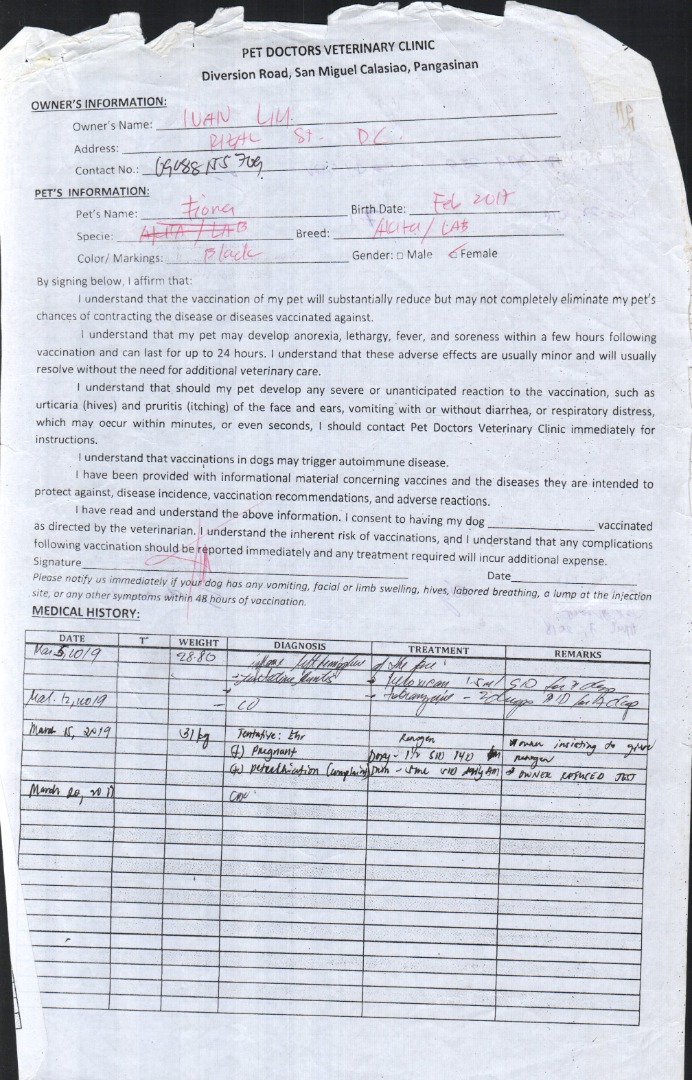 PET DOCTORS VETERINARY CLINIC
Diversion Road, San Miguel Calasiao, Pangasinan
OWNER'S INFORMATION:
Owner's Name: IVAN LIU
Address: RIZAL St. D.C.
Contact No.:
PET'S INFORMATION:
Pet's Name: Fiona Birth Date: Feb 2017
Specie: AKITA / LAB Breed: Akita / LAB
Color/ Markings: Black Gender: □ Male ☑ Female
By signing below, I affirm that:
I understand that the vaccination of my pet will substantially reduce but may not completely eliminate my pet's
chances of contracting the disease or diseases vaccinated against.
I understand that my pet may develop anorexia, lethargy, fever, and soreness within a few hours following
vaccination and can last for up to 24 hours. I understand that these adverse effects are usually minor and will usually
resolve without the need for additional veterinary care.
I understand that should my pet develop any severe or unanticipated reaction to the vaccination, such as
urticaria (hives) and pruritis (itching) of the face and ears, vomiting with or without diarrhea, or respiratory distress,
which may occur within minutes, or even seconds, I should contact Pet Doctors Veterinary Clinic immediately for
instructions.
I understand that vaccinations in dogs may trigger autoimmune disease.
I have been provided with informational material concerning vaccines and the diseases they are intended to
protect against, disease incidence, vaccination recommendations, and adverse reactions.
I have read and understand the above information. I consent to having my dog ____ vaccinated
as directed by the veterinarian. I understand the inherent risk of vaccinations, and I understand that any complications
following vaccination should be reported immediately and any treatment required will incur additional expense.
Signature____ Date____
Please notify us immediately if your dog has any vomiting, facial or limb swelling, hives, labored breathing, a lump at the injection
site, or any other symptoms within 48 hours of vaccination.
MEDICAL HISTORY:
DATE T° WEIGHT DIAGNOSIS TREATMENT REMARKS
Mar 5, 2019 28.80 of the face
SID for
Mar. 12, 2019
March 15, 2019 31 kg Tentative: Ehr owner insisting to give
(+) pregnant Doxy - 1 1/2 SID 14D
(+) petecchiation → OWNER REFUSED TEST
March 20,